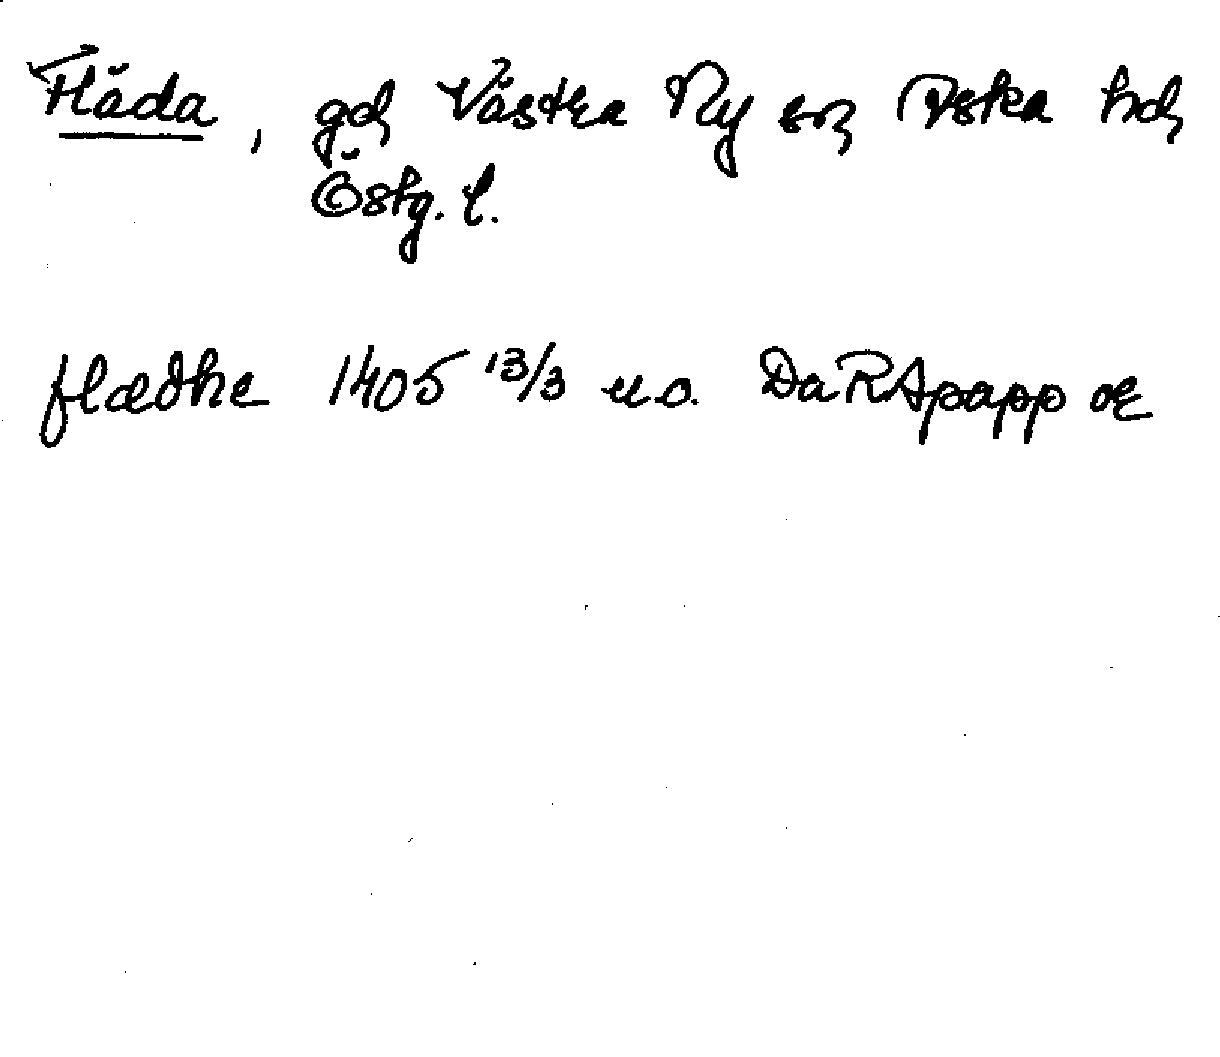 Fläda, gd Västra Ny sn Aska hd
Östg. l.
flædhe 1405 13/3 u.o. DaRApapp or